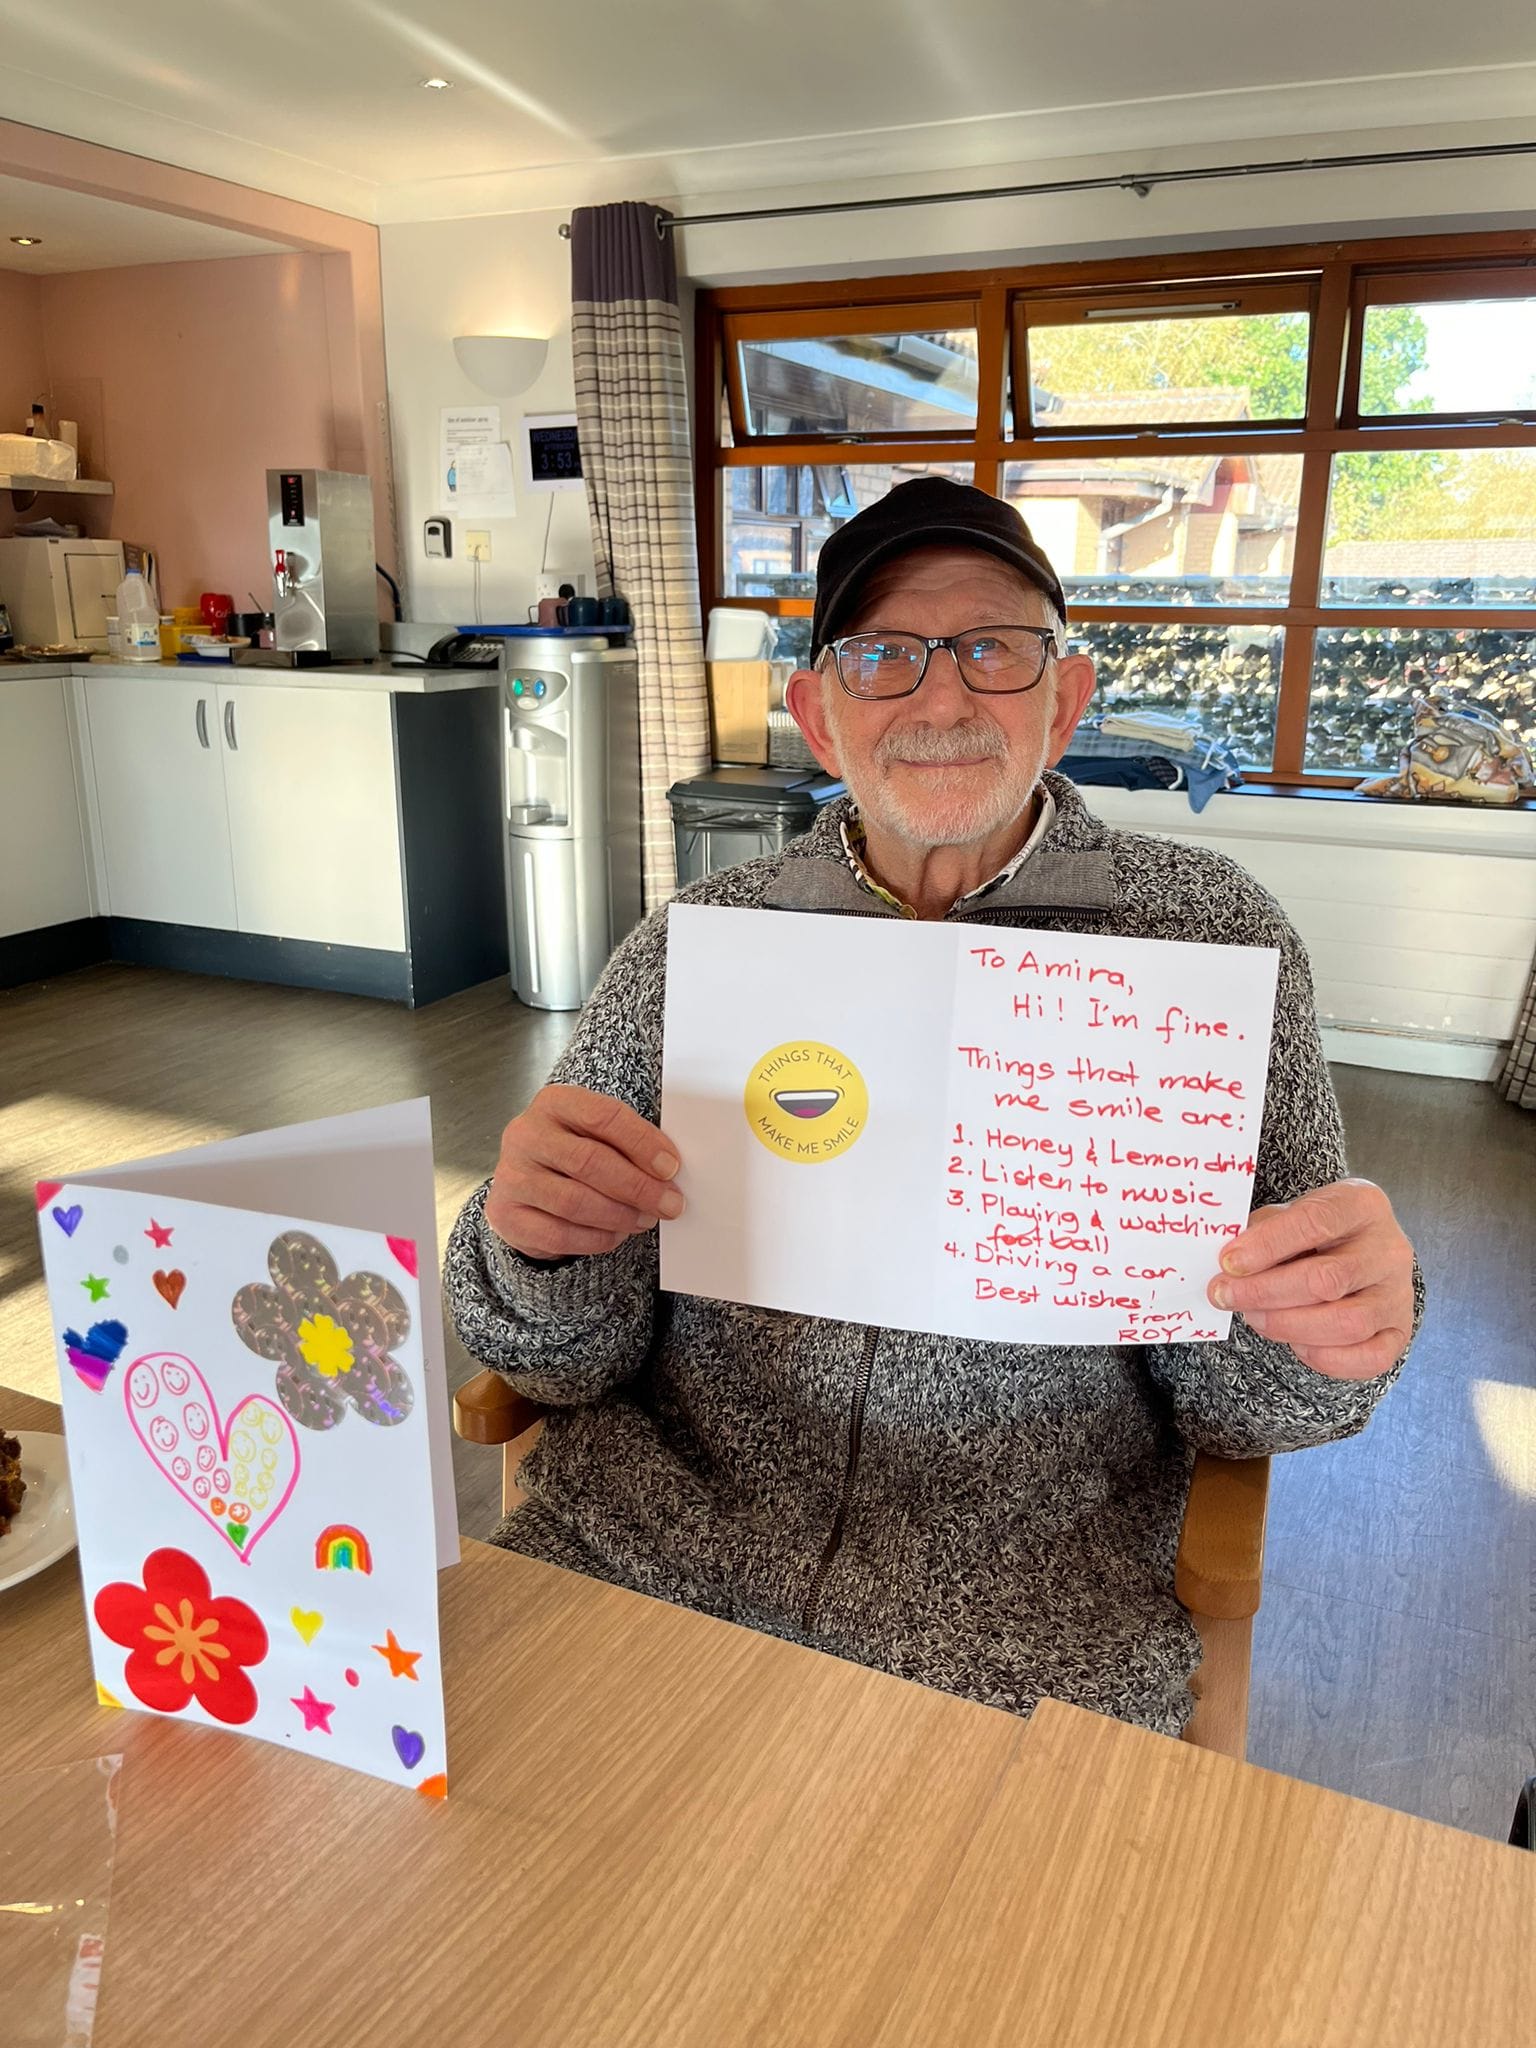 WEDNESDA
AFTERNOON
3:53
THINGS THAT
MAKE ME SMILE
To Amira,
Hi! I'm fine.
Things that make
me smile are:
1. Honey & Lemon drink
2. Listen to music
3. Playing & watching
football
4. Driving a car.
Best wishes!
From
ROY xx